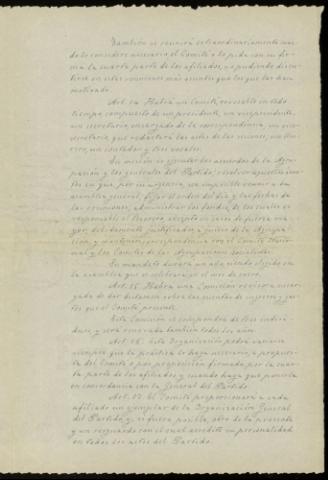 También se reunirá extraordinariamente cuan-
do lo considere necesario el Comité o lo pida con su fir-
ma la cuarta parte de los afiliados, no pudiendo discu-
tirse en estas reuniones más asuntos que los que las han
motivado.
Art. 14. Habrá un Comité, revocable en todo
tiempo, compuesto de un presidente, un vicepresidente,
un secretario encargado de la correspondencia, un vice-
secretario, que redactará las actas de las sesiones, un teso-
rero, un contador y tres vocales.
Su misión es ejecutar los acuerdos de la Agru-
pación y los generales del Partido; resolver aquellos asun-
tos en que, por su urgencia, sea imposible convocar la
asamblea general; fijar el orden del día y las fechas de
las reuniones; administrar los fondos, de los cuales es
responsable el Tesorero, excepto en caso de fuerza ma-
yor, debidamente justificada, a juicio de la Agrupa-
ción, y mantener correspondencia con el Comité Nacio-
nal y los Comités de las Agrupaciones socialistas.
Su mandato durará un año, siendo elegido en
la asamblea que se celebrará en el mes de enero.
Art. 15. Habrá una Comisión revisora encar-
gada de dar dictamen sobre las cuentas de ingresos y gas-
tos que el Comité presente.
Esta Comisión se compondrá de tres indivi-
duos, y será renovada también todos los años.
Art. 16. Esta Organización podrá variarse
siempre que la práctica lo haga necesario, a propuesta
del Comité o por proposición firmada por la cuar-
ta parte de los afiliados, y cuando haya que ponerla
en concordancia con la General del Partido.
Art. 17. El Comité proporcionará a cada
afiliado un ejemplar de la Organización General
del Partido y, si fuera posible, otro de la presente
y un resguardo con el cual acredite su personalidad
en todos los actos del Partido.